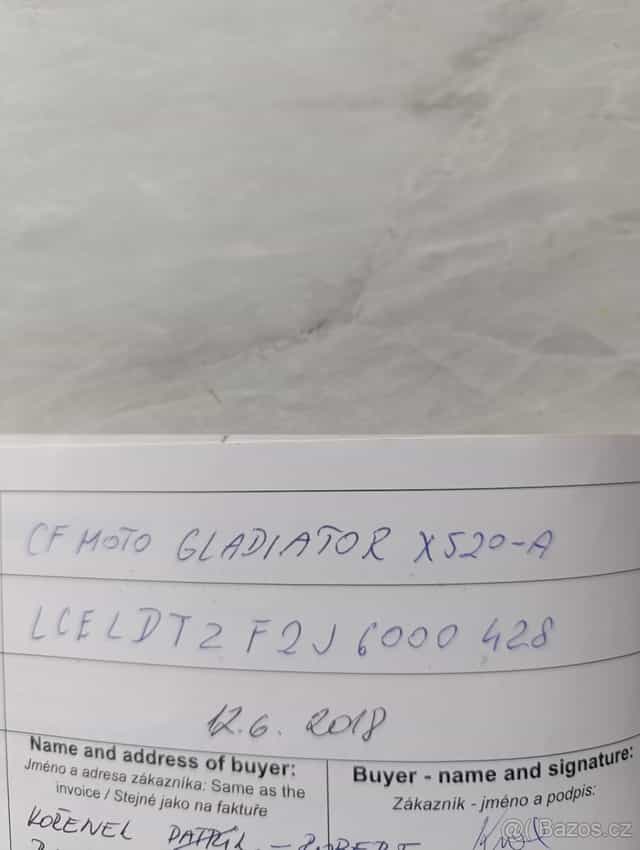 CF MOTO GLADIATOR X520-A
LCELDTZ F2J 6000 428
12.6. 2018
Name and address of buyer:
Jméno a adresa zákazníka: Same as the
invoice / Stejné jako na faktuře
Buyer - name and signature:
Zákazník - jméno a podpis:
KOŘENEL
Bazos.cz